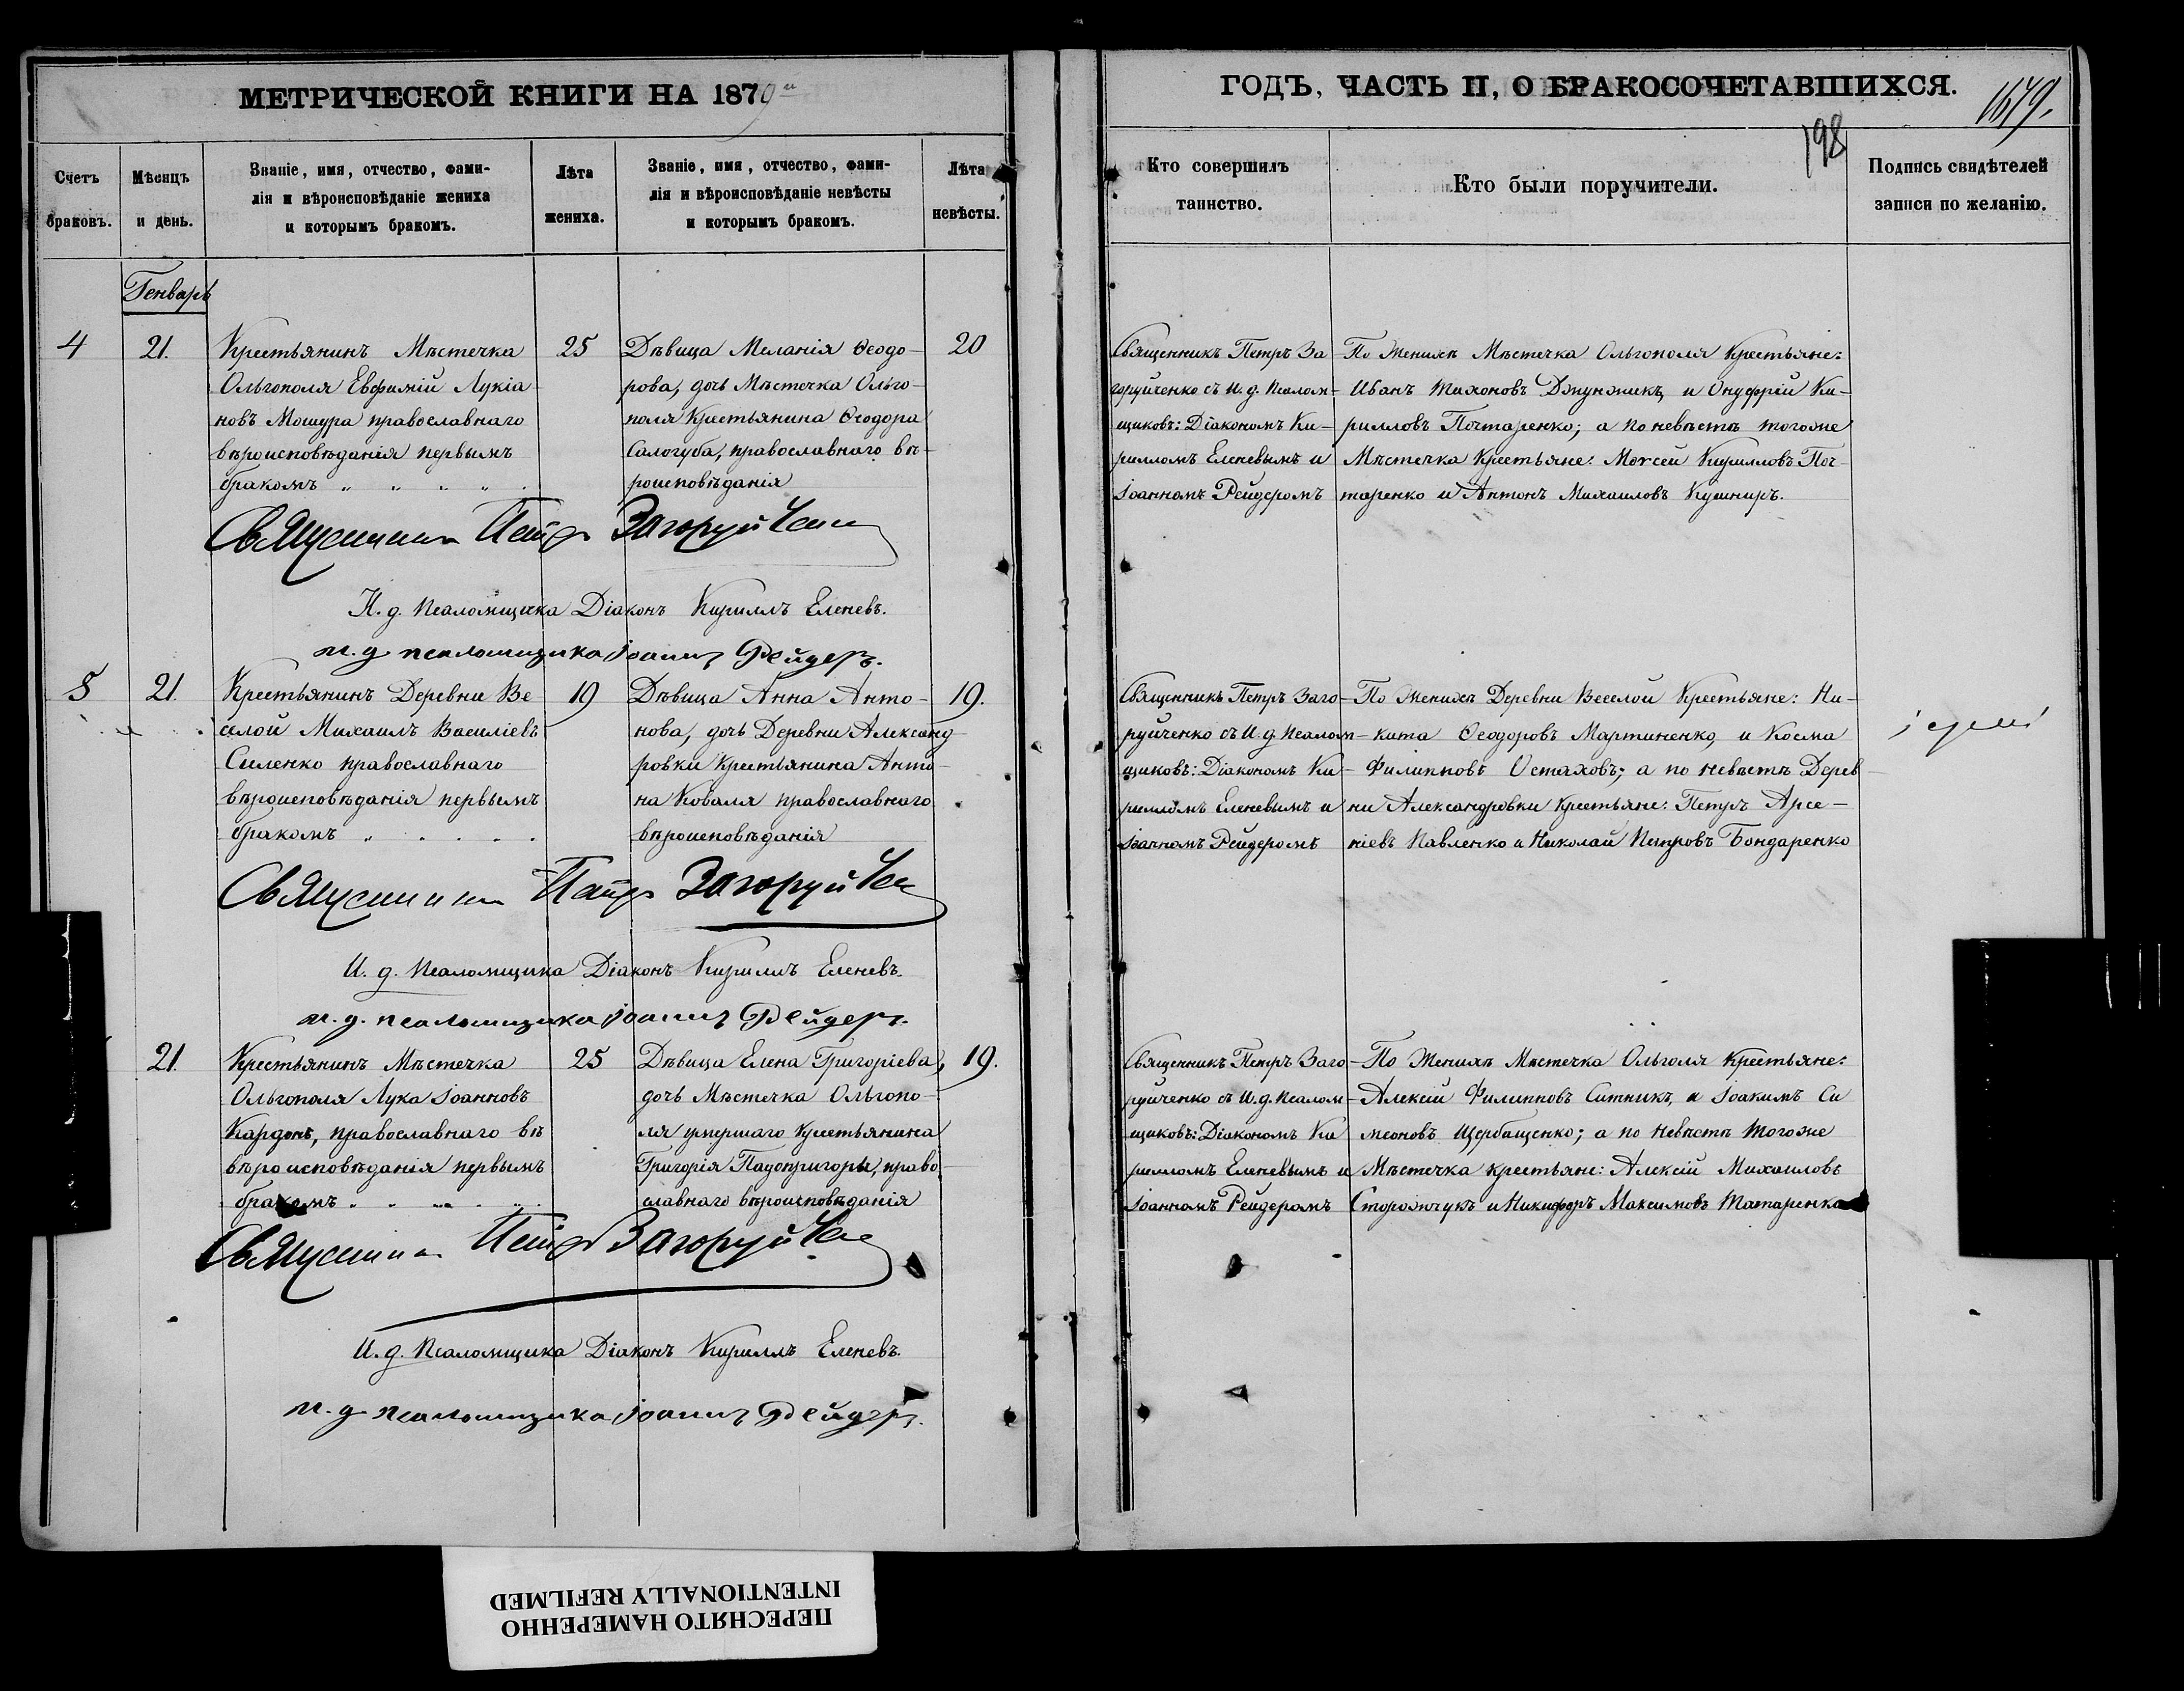 МЕТРИЧЕСКОЙ КНИГИ НА 1879
ГОДЪ, ЧАСТЬ II, О БРАКОСОЧЕТАВШИХСЯ.
1679.
198
Счетъ браковъ.
Мѣсяцъ и день.
Званіе, имя, отчество, фами-
лія и вѣроисповѣданіе жениха
и которымъ бракомъ.
Лѣта жениха.
Званіе, имя, отчество, фами-
лія и вѣроисповѣданіе невѣсты
и которымъ бракомъ.
Лѣта невѣсты.
Кто совершилъ
таинство.
Кто были поручители.
Подпись свидѣтелей
записи по желанію.
Генварь
4
21.
Крестьянинъ Мѣстечка
Ольгополя Евфимій Лукіа
новъ Мошура православнаго
вѣроисповѣданія первымъ
бракомъ
25
Дѣвица Меланія Ѳеодо-
рова, дочь Мѣстечка Ольго-
поля Крестьянина Ѳеодора
Салогуба, православнаго вѣ-
роисповѣданія
20
Священникъ Петръ За
горуйченко съ И. д. Псалом-
щиковъ: Діакономъ Ки-
рилломъ Еленевымъ и
Іоанномъ Рейдеромъ
По Женихѣ Мѣстечка Ольгополя Крестьяне:
Иванъ Тихоновъ Джунжикъ, и Онуфрій Ки-
рилловъ Почтаренко; а по невѣстѣ тогоже
Мѣстечка Крестьяне: Моѵсей Кирилловъ Поч-
таренко и Антонъ Михаиловъ Кушниръ.
Священникъ Петръ Загоруйченко
И. д. Псаломщика Діаконъ Кириллъ Еленевъ.
и. д. псаломщика Іоаннъ Рейдеръ.
5
21.
Крестьянинъ Деревни Ве
селой Михаилъ Василіевъ
Силенко православнаго
вѣроисповѣданія первымъ
бракомъ
19
Дѣвица Анна Анто-
нова, дочь Деревни Александ-
ровки Крестьянина Анто-
на Коваля православнаго
вѣроисповѣданія
19.
Священникъ Петръ Заго-
руйченко съ И. д. Псалом-
щиковъ: Діакономъ Ки-
рилломъ Еленевымъ и
Іоанномъ Рейдеромъ
По Женихѣ Деревни Веселой Крестьяне: Ни-
кита Ѳеодоровъ Мартиненко, и Косма
Филипповъ Остаховъ; а по невѣстѣ Дерев-
ни Александровки Крестьяне: Петръ Арсе-
ніевъ Павленко и Николай Петровъ Бондаренко
Священникъ Петръ Загоруйченко
И. д. Псаломщика Діаконъ Кириллъ Еленевъ.
и. д. псаломщика Іоаннъ Рейдеръ.
21.
Крестьянинъ Мѣстечка
Ольгополя Лука Іоанновъ
Кардонъ, православнаго вѣ
вѣроисповѣданія первымъ
бракомъ
25
Дѣвица Елена Григоріева,
дочь Мѣстечка Ольгопо-
ля умершаго Крестьянина
Григорія Падопригоры, право
славнаго вѣроисповѣданія
19.
Священникъ Петръ Заго-
руйченко съ И. д. Псалом-
щиковъ: Діакономъ Ки
рилломъ Еленевымъ и
Іоанномъ Рейдеромъ
По Женихѣ Мѣстечка Ольголя Крестьяне:
Алексій Филипповъ Ситникъ, и Іоакимъ Си
меоновъ Щербащенко; а по Невѣстѣ Тогоже
Мѣстечка крестьяне: Алексій Михаиловъ
Сторожчукъ и Никифоръ Максимовъ Татаренко
Священникъ Петръ Загоруйченко
И. д. Псаломщика Діаконъ Кириллъ Еленевъ.
и. д. псаломщика Іоаннъ Рейдеръ.
ПЕРЕСНЯТО НАМЕРЕННО
INTENTIONALLY REFILMED